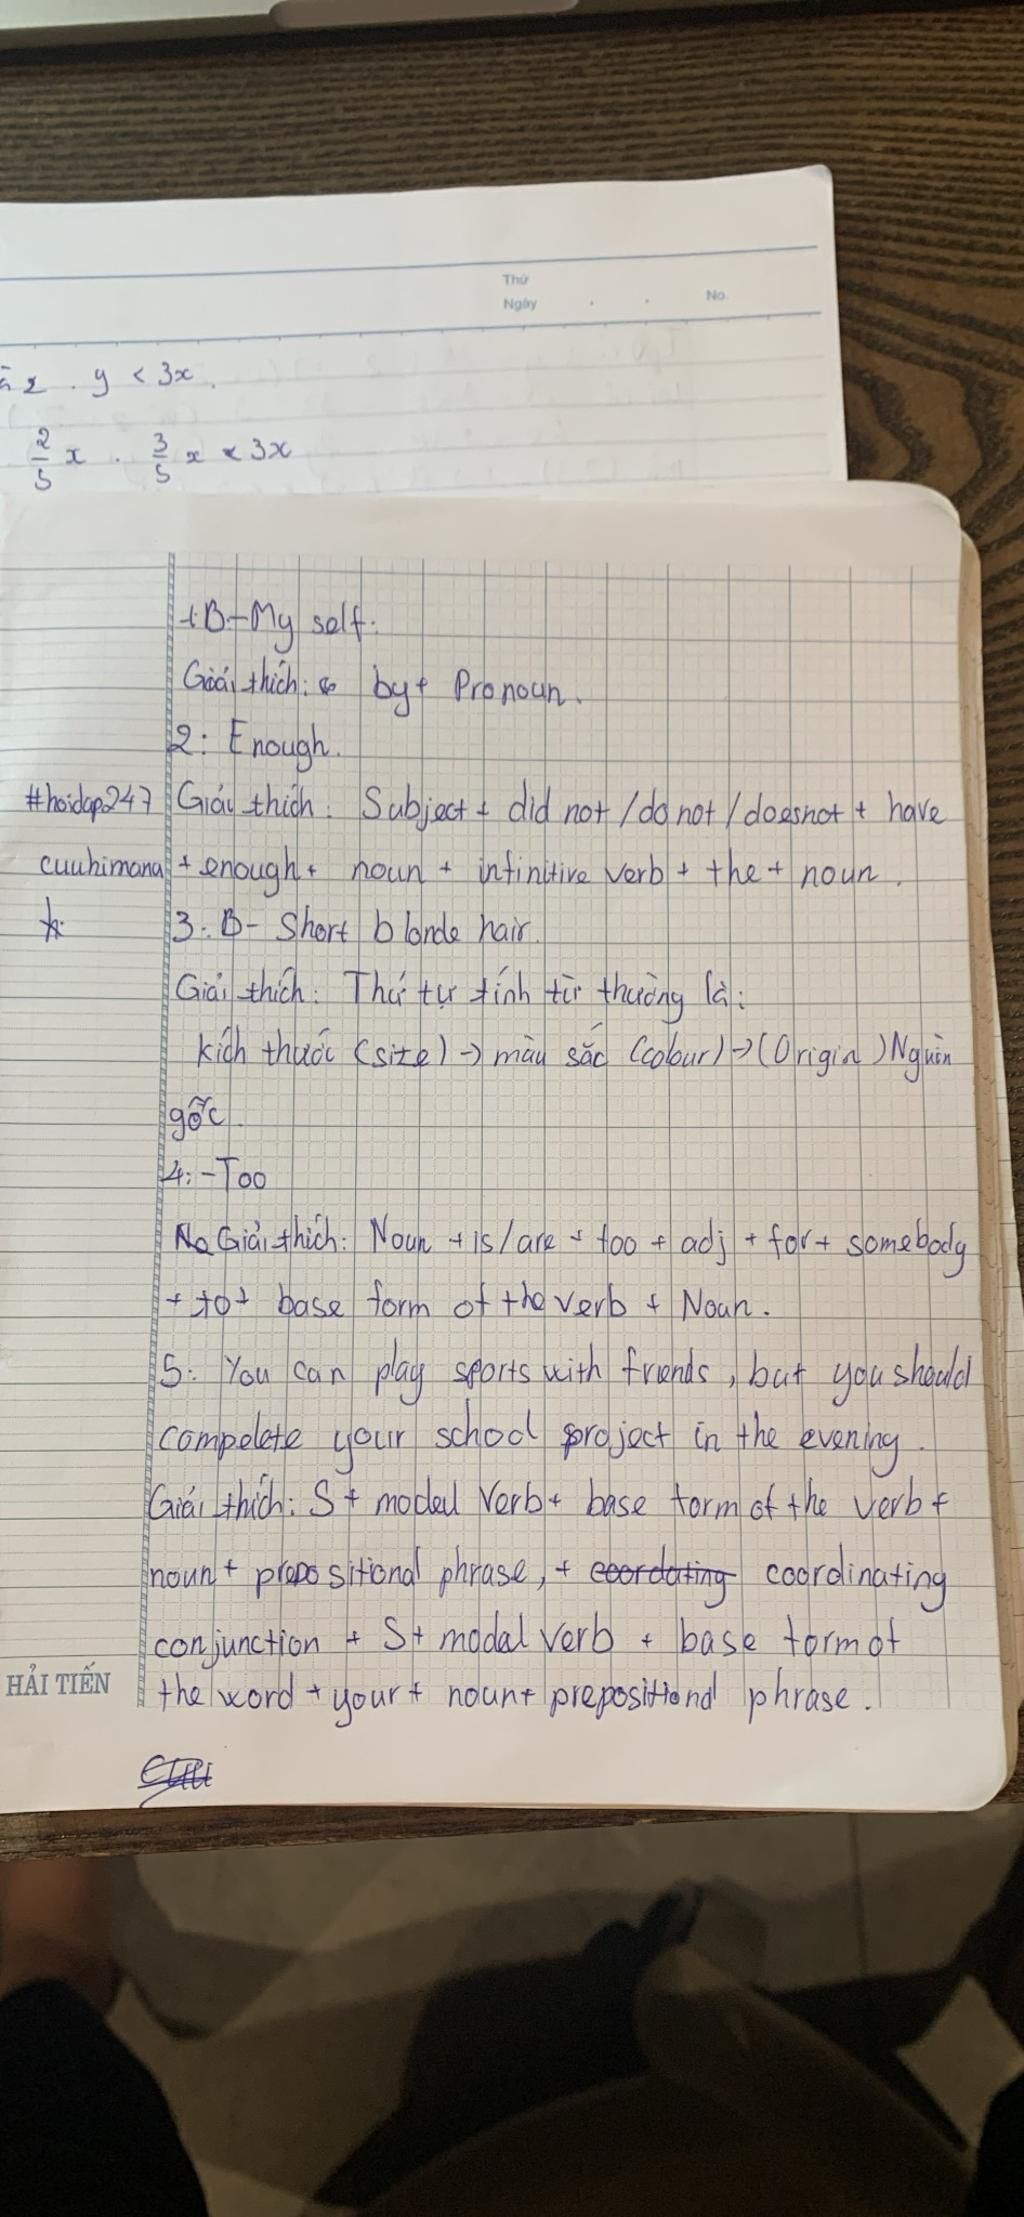 Thứ
Ngày . . No.
2 . y < 3x .
2/5 x . 3/5 x < 3x
1: B - My self.
Giải thích: by + Pronoun.
2: Enough.
#hoidap247 Giải thích: Subject + did not / do not / doesnot + have
cuuhimana + enough + noun + infinitive verb + the + noun.
3: B - Short blonde hair.
Giải thích: Thứ tự tính từ thường là:
kích thước (size) → màu sắc (colour) → (Origin) Nguồn
gốc.
4: - Too
Giải thích: Noun + is/are + too + adj + for + somebody
+ to + base form of the verb + Noun.
5: You can play sports with friends, but you should
compelete your school project in the evening.
Giải thích: S + modal Verb + base form of the verb +
noun + prepositional phrase, + coordinating
conjunction + S + modal verb + base form of
HẢI TIẾN the word + your + noun + prepositional phrase.